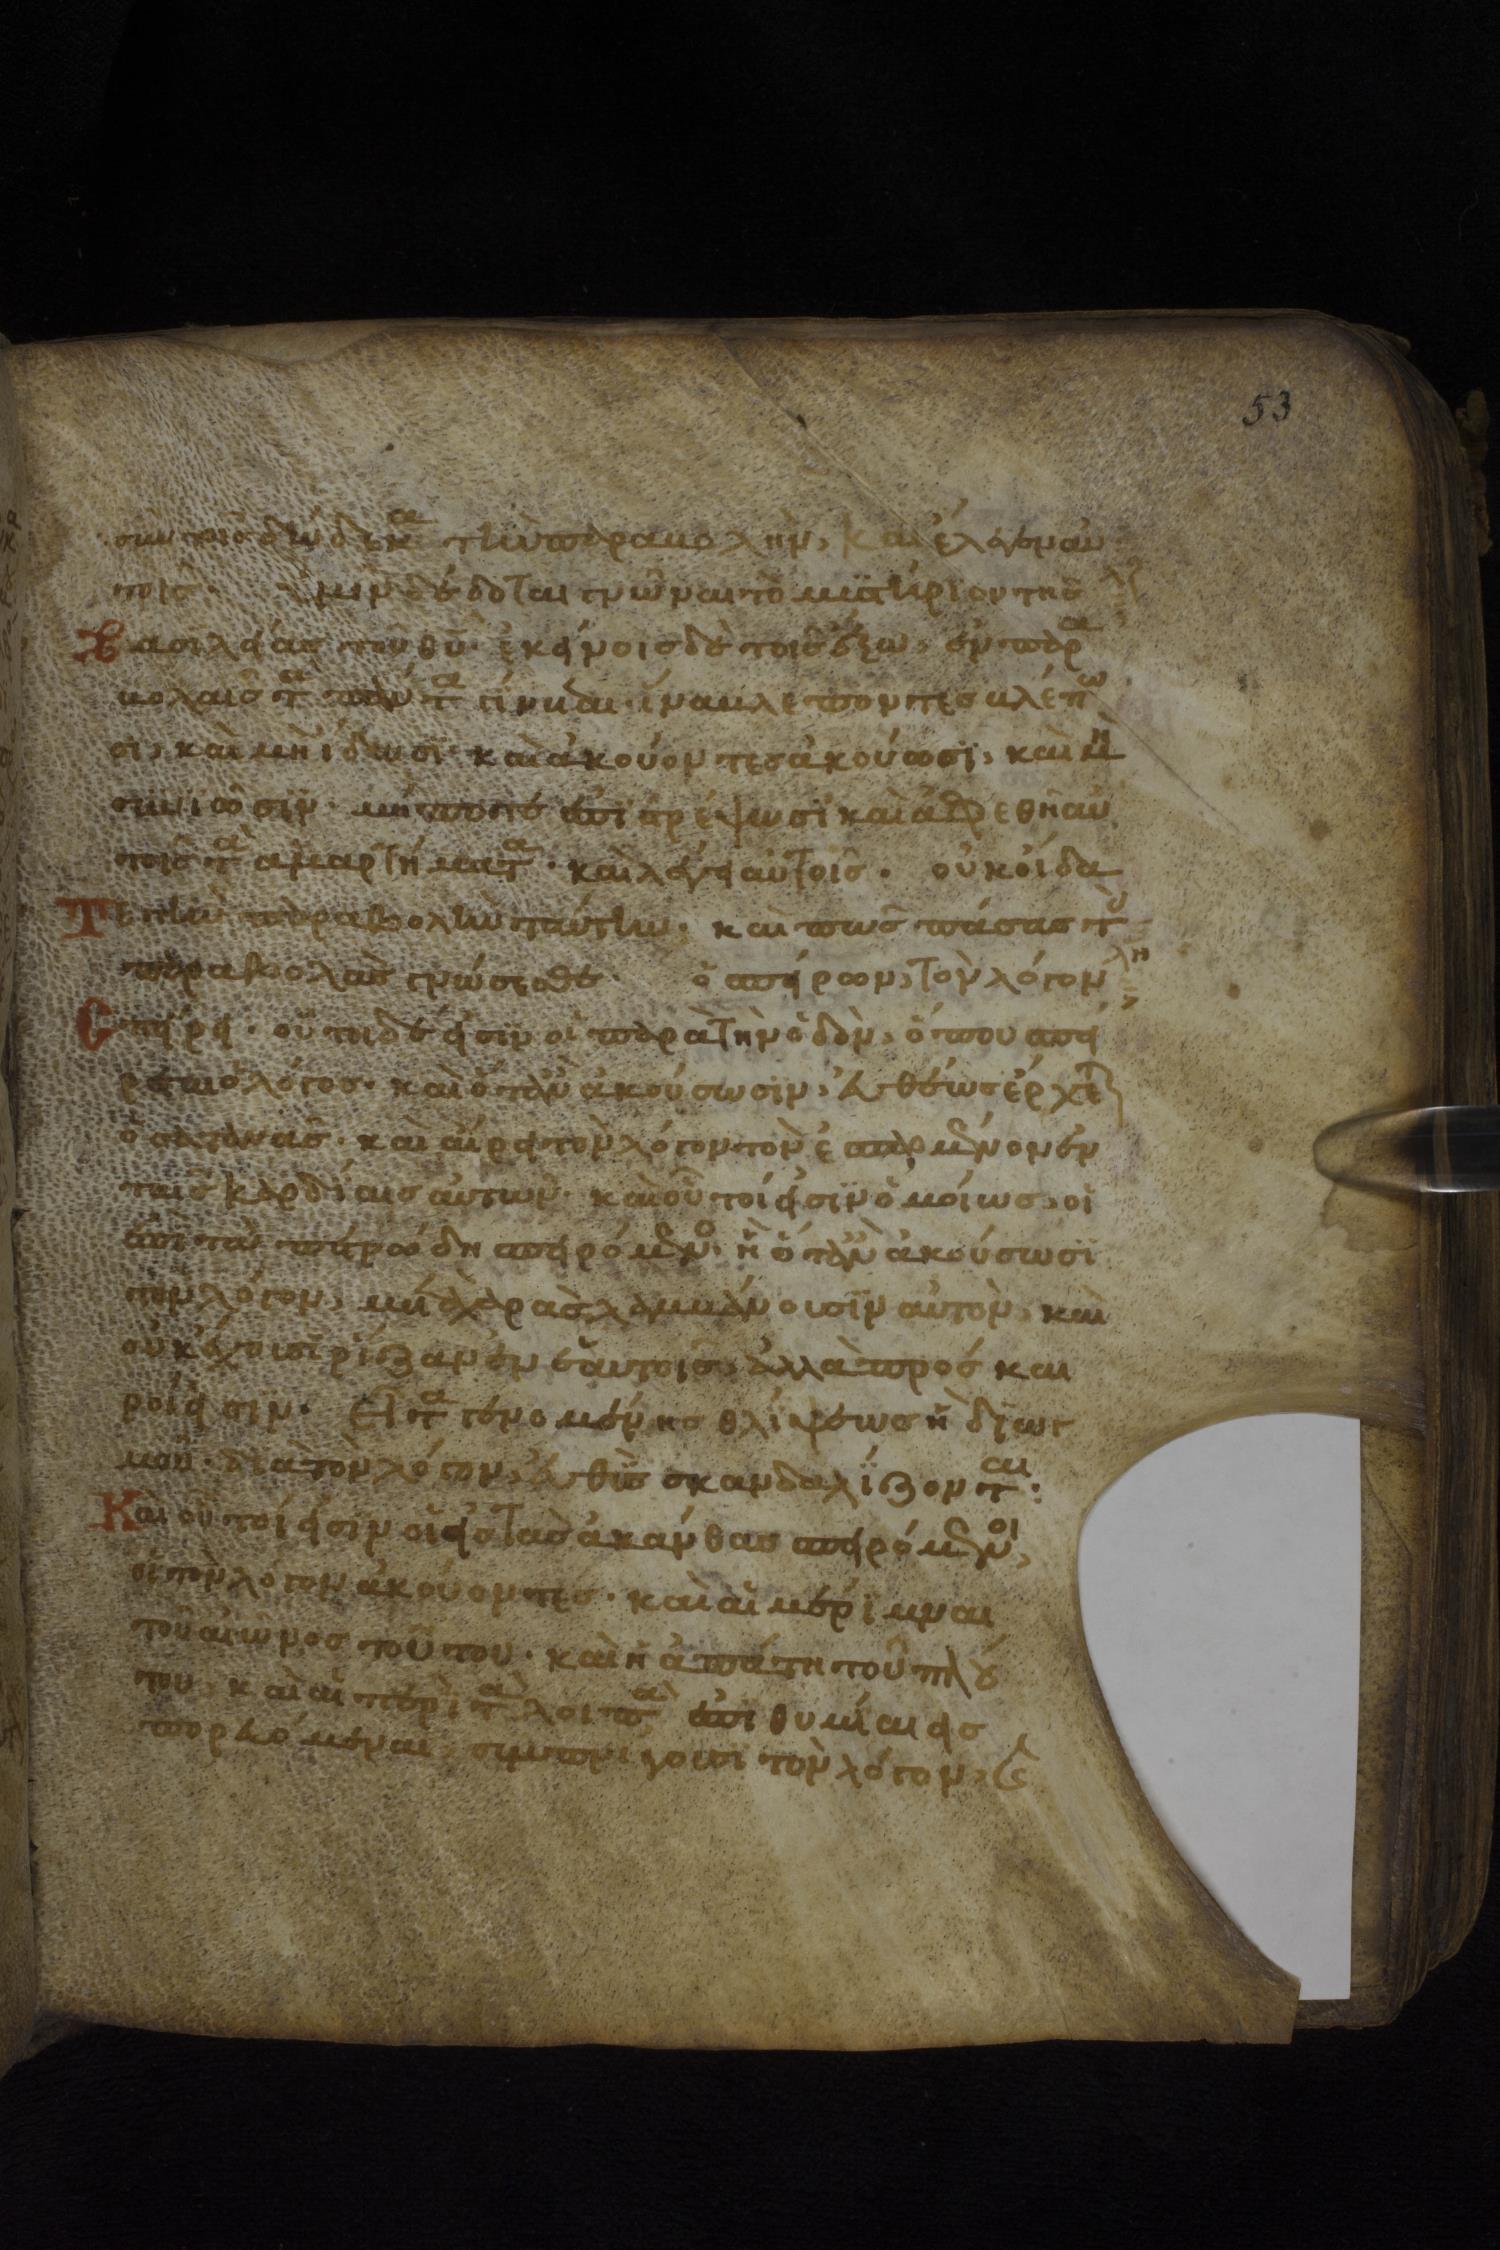 53
σὺν τοῖς δώδεκα τὴν παραβολήν, καὶ ἔλεγεν αὐ
τοῖς· ὑμῖν δέδοται γνῶναι τὸ μυστήριον τῆς
βασιλείας τοῦ θυ· ἐκείνοις δὲ τοῖς ἔξω, ἐν παρα
βολαῖς τὰ πάντα γίνεται· ἵνα βλέποντες βλέπω
σι, καὶ μὴ ἴδωσι· καὶ ἀκούοντες ἀκούωσι, καὶ μὴ
συνιῶσιν· μήποτε ἐπιστρέψωσι καὶ ἀφεθῆ αὐ
τοῖς τὰ ἁμαρτήματα· καὶ λέγει αὐτοῖς· οὐκ οἴδα
τε τὴν παραβολὴν ταύτην· καὶ πῶς πάσας τὰς
παραβολὰς γνώσεσθε· ὁ σπείρων, τὸν λόγον
σπείρει· οὗτοι δέ εἰσιν οἱ παρὰ τὴν ὁδὸν, ὅπου σπεί
ρεται ὁ λόγος· καὶ ὅταν ἀκούσωσιν, εὐθέως ἔρχεται
ὁ σατανᾶς· καὶ αἴρει τὸν λόγον τὸν ἐσπαρμένον ἐν
ταῖς καρδίαις αὐτῶν· καὶ οὗτοί εἰσιν ὁμοίως, οἱ
ἐπὶ τὰ πετρώδη σπειρόμενοι· οἳ ὅταν ἀκούσωσι
τὸν λόγον, μετὰ χαρᾶς λαμβάνουσιν αὐτὸν, καὶ
οὐκ ἔχουσι ῥίζαν ἐν ἑαυτοῖς, ἀλλὰ πρόσκαι
ροί εἰσιν· Εἶτα γενομένης θλίψεως ἢ διωγ
μοῦ· διὰ τὸν λόγον, εὐθὺς σκανδαλίζονται·
Καὶ οὗτοί εἰσιν οἱ εἰς τὰς ἀκάνθας σπειρόμενοι,
οἱ τὸν λόγον ἀκούοντες· καὶ αἱ μέριμναι
τοῦ αἰῶνος τούτου· καὶ ἡ ἀπάτη τοῦ πλού
του, καὶ αἱ περὶ τὰ λοιπὰ ἐπιθυμίαι εἰσ
πορευόμεναι, συμπνίγουσι τὸν λόγον,